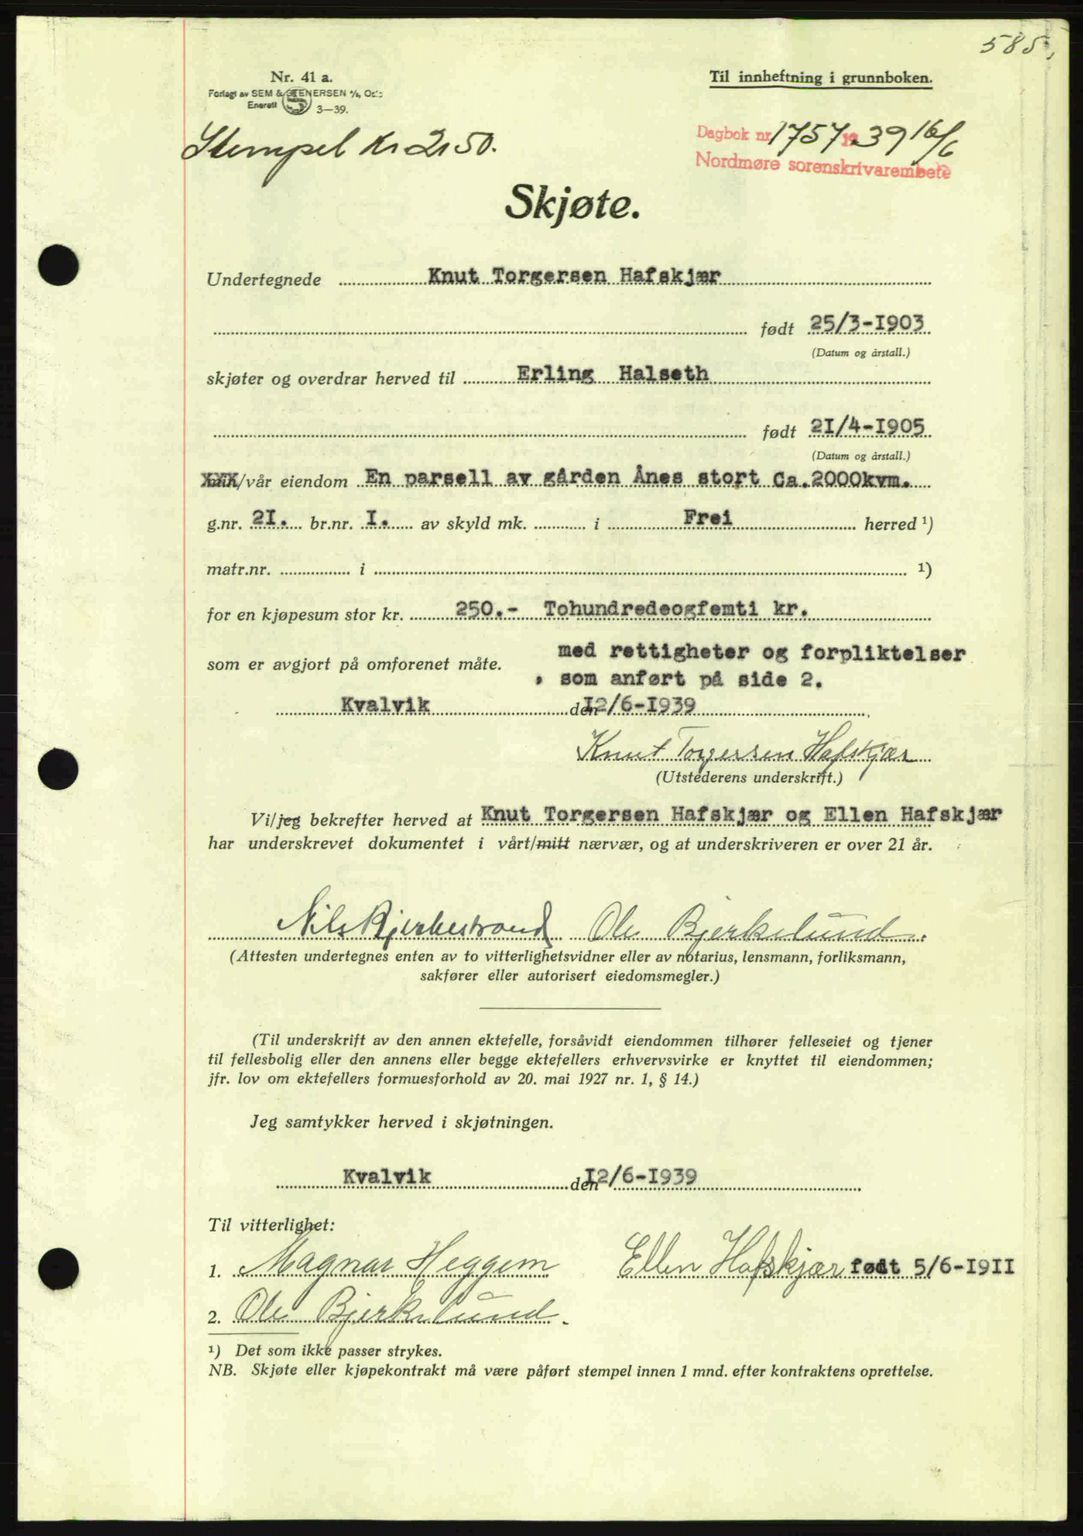 585.
Nr. 41 a.
Til innheftning i grunnboken.
Forlagt av SEM & STENERSEN A/S, Oslo
Enerett 3—39.
Stempel kr 2,50.
Dagbok nr. 1757 1939 16/6
Nordmøre sorenskrivarembete
Skjøte.
Undertegnede Knut Torgersen Hafskjær
født 25/3-1903
(Datum og årstall.)
skjøter og overdrar herved til Erling Halseth
født 21/4-1905
(Datum og årstall.)
XXX/vår eiendom En parsell av gården Ånes stort Ca.2000kvm.
g.nr. 21. br.nr. 1. av skyld mk. i Frei herred ¹)
matr.nr. i ¹)
for en kjøpesum stor kr. 250.- Tohundredeogfemti kr.
som er avgjort på omforenet måte. med rettigheter og forpliktelser
som anført på side 2.
Kvalvik den 12/6-1939
Knut Torgersen Hafskjær
(Utstederens underskrift.)
Vi/jeg bekrefter herved at Knut Torgersen Hafskjær og Ellen Hafskjær
har underskrevet dokumentet i vårt/mitt nærvær, og at underskriveren er over 21 år.
Nils Bjerkestrand Ole Bjerkelund.
(Attesten undertegnes enten av to vitterlighetsvidner eller av notarius, lensmann, forliksmann,
sakfører eller autorisert eiedomsmegler.)
(Til underskrift av den annen ektefelle, forsåvidt eiendommen tilhører felleseiet og tjener
til fellesbolig eller den annens eller begge ektefellers erhvervsvirke er knyttet til eiendommen;
jfr. lov om ektefellers formuesforhold av 20. mai 1927 nr. 1, § 14.)
Jeg samtykker herved i skjøtningen.
Kvalvik den 12/6-1939
Til vitterlighet:
1. Magnar Heggem Ellen Hafskjær født 5/6-1911
2. Ole Bjerkelund.
¹) Det som ikke passer strykes.
NB. Skjøte eller kjøpekontrakt må være påført stempel innen 1 mnd. efter kontraktens oprettelse.